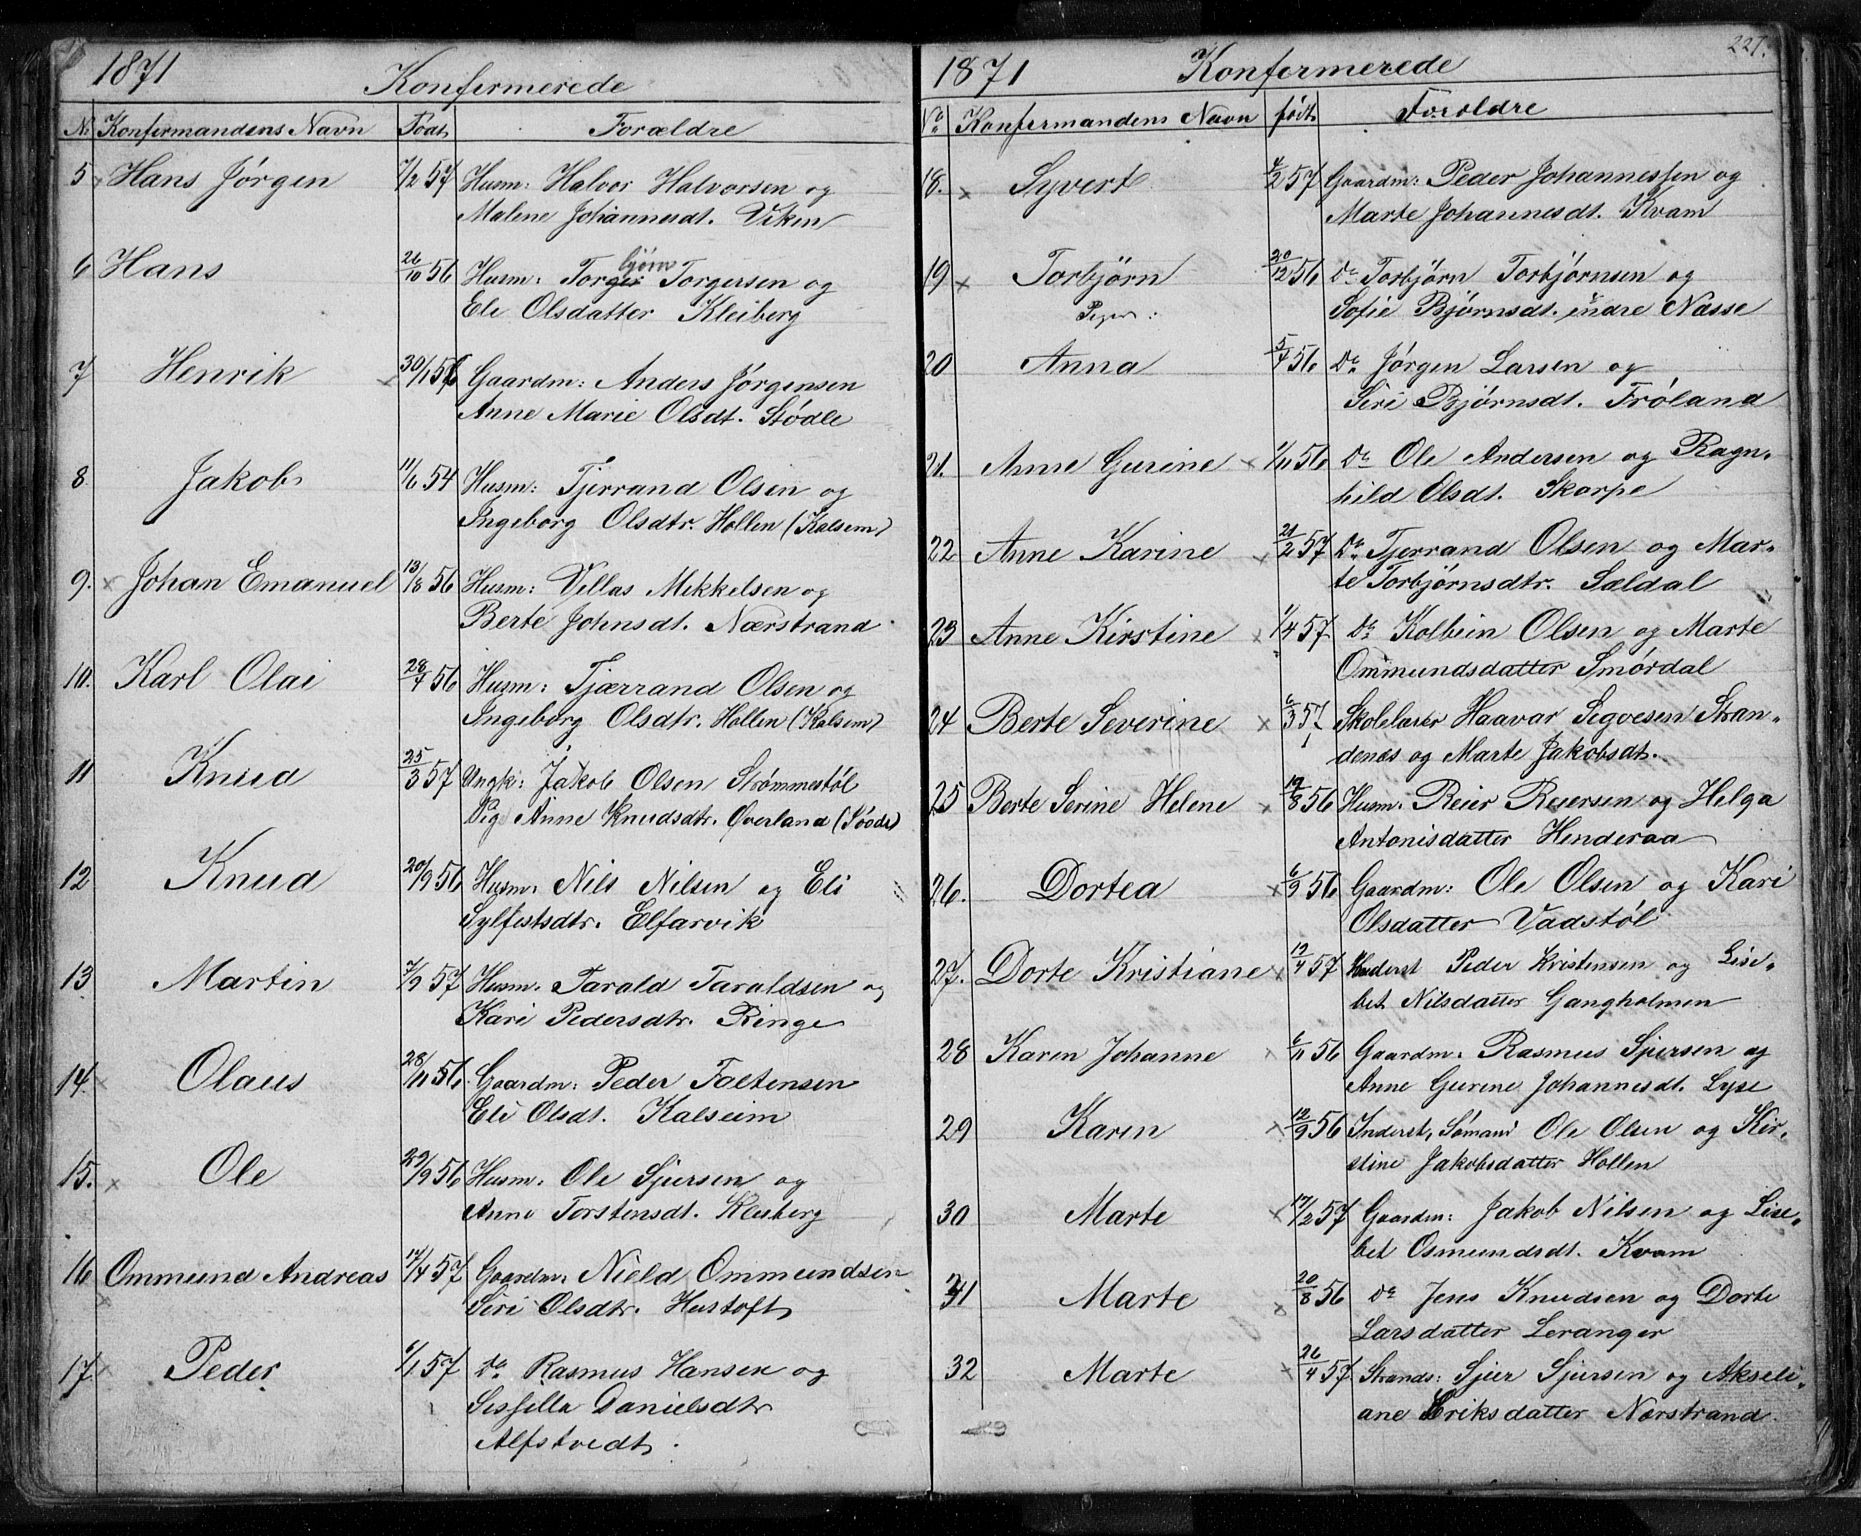 1871 Konfermerede
No Konfermandens Navn Födt Forældre
5 Hans Jörgen 7/2 57 Husm: Halvor Halvorsen og
Malene Johannesdt. Viken
6 Hans 26/10 56 Husm: Torger björn Torgersen og
Eli Olsdatter Kleiberg
7 Henrik 30/1 56 Gaardm: Anders Jörgensen
Anne Marie Olsdt. Stödle
8 Jakob 11/6 54 Husm: Tjerrand Olsen og
Ingeborg Olsdtr. Hollen (Kalsem)
9. Johan Emanuel 13/8 56 Husm: Villas Mikkelsen og
Berte Johnsdt. Nærstrand
10. Karl Olai 28/4 56 Husm: Tjærrand Olsen og
Ingeborg Olsdtr. Hollen (Kalsem)
11 Knud 25/3 57 Ungk: Jakob Olsen Strömmestöl
Pig Anne Knudsdtr. Överland
12 Knud 20/9 56 Husm. Nils Nilsen og Eli
Sylfestsdtr. Elfarvik
13 Martin 7/9 57 Husm. Tarald Taraldsen og
Kari Pedersdtr. Ringe
14. Olaus 28/11 56 Gaardm: Peder Toltensen
Eli Olsdt. Kalseim
15. Ole 29/9 56 Husm. Ole Sjursen og
Anne Torstensdt. Kleiberg
16 Ommund Andreas 17/4 57 Gaardm. Nield Ommundsen
Siri Olsdtr. Hustoft
17 Peder 6/1 57 Do Rasmus Hansen og
Sissella Danielsdtr
Alfstvedt.
227.
1871 Konfermerede
No Konfermandens Navn födt Foroldre
18. Syvert 4/2 57 Gaardm: Peder Johannessen og
Marte Johannesdt. Kvam
19 Torbjörn 20/12 56 Do Torbjörn Torbjörnsen og
Sofie Björnsdt. indre Nasse
Piger:
20 Anna 5/7 56 Do Jörgen Larsen og
Siri Björnsdt. Fröland
21. Anne Gurine 1/11 56 Do Ole Andersen og Ragn-
hild Olsdt. Skorpe
22 Anne Karine 21/2 57 Do Tjerrand Olsen og Mar-
te Torbjörnsdtr. Sældal
23 Anne Kirstine 1/4 57. Do Kolbein Olsen og Marte
Ommundsdatter Smördal
24 Berte Severine 6/3 57 Skolelærer Haavar Segvesen Stran-
denæs og Marte Jakobsdt.
25 Berte Serine Helene 19/8 56 Husm. Reier Reiersen og Helga
Antonisdatter Henderaa
26. Dortea 6/9 56 Gaardm: Ole Olsen og Kari
Olsdatter Vadstöl
27. Dorte Kristiane 19/4 57 Inderst Peder Kristensen og Lise-
bet Nilsdatter Gangholmen
28 Karen Johanne 6/11 56 Gaardm. Rasmus Sjursen og
Anne Gurine Johannesdt. Lyse
29 Karen 12/9 56 Inderst, Sömand Ole Olsen og Kir-
stine Jakobsdatter Hollen
30 Marte 17/2 57 Gaardm: Jakob Nilsen og Lise-
bet Osmundsdt. Kvam
31 Marte 20/8 56 Do Jens Knudsen og Dorte
Larsdatter Leranger
32 Marte 26/4 57 Strands: Sjur Sjursen og Akseli-
ane Eriksdatter Nærstrand.